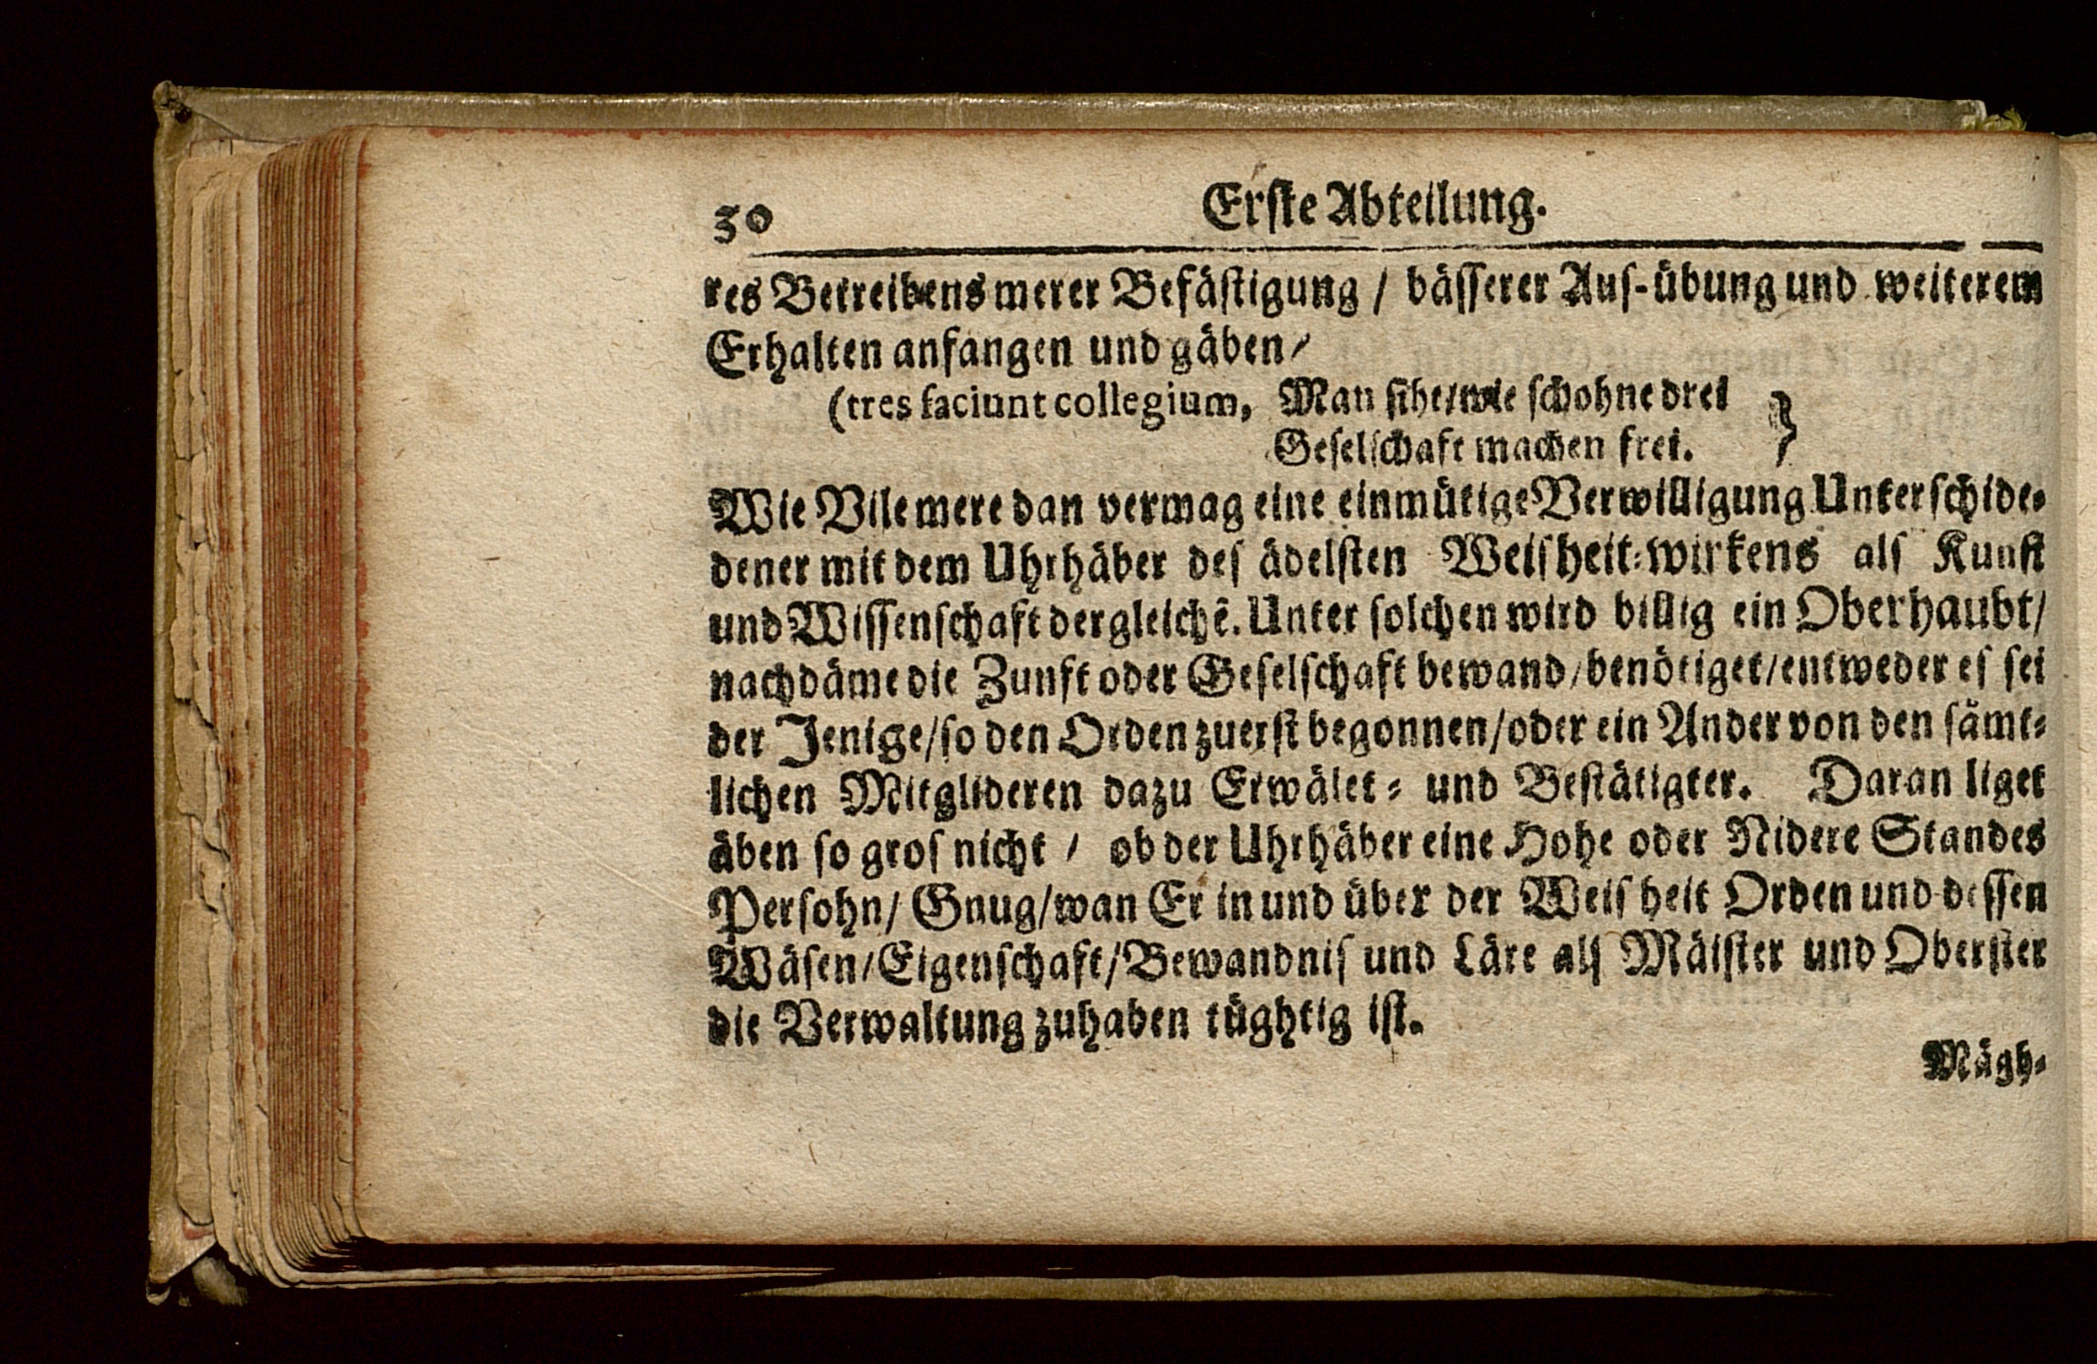 30 Erste Abteilung.
res Betreibens merer Befästigung / bässerer Aus-übung und weiterem
Erhalten anfangen und gäben /
(tres faciunt collegium, Man sihe / wie schohne drei
Geselschaft machen frei. )
Wie Vile mere dan vermag eine einmütige Verwilligung Unterschide-
dener mit dem Uhrhäber des ädelsten Weisheit-wirkens als Kunst
und Wissenschaft dergleichẽ. Unter solchen wird billig ein Oberhaubt /
nachdäme die Zunft oder Geselschaft bewand / benötiget / entweder es sei
der Jenige / so den Orden zuerst begonnen / oder ein Ander von den sämt-
lichen Mitglideren dazu Erwälet- und Bestätigter. Daran liget
äben so gros nicht / ob der Uhrhäber eine Hohe oder Nidere Standes
Persohn / Gnug / wan Er in und über der Weisheit Orden und dessen
Wäsen / Eigenschaft / Bewandnis und Läre als Mäister und Oberster
die Verwaltung zuhaben tüghtig ist.
Mägh-